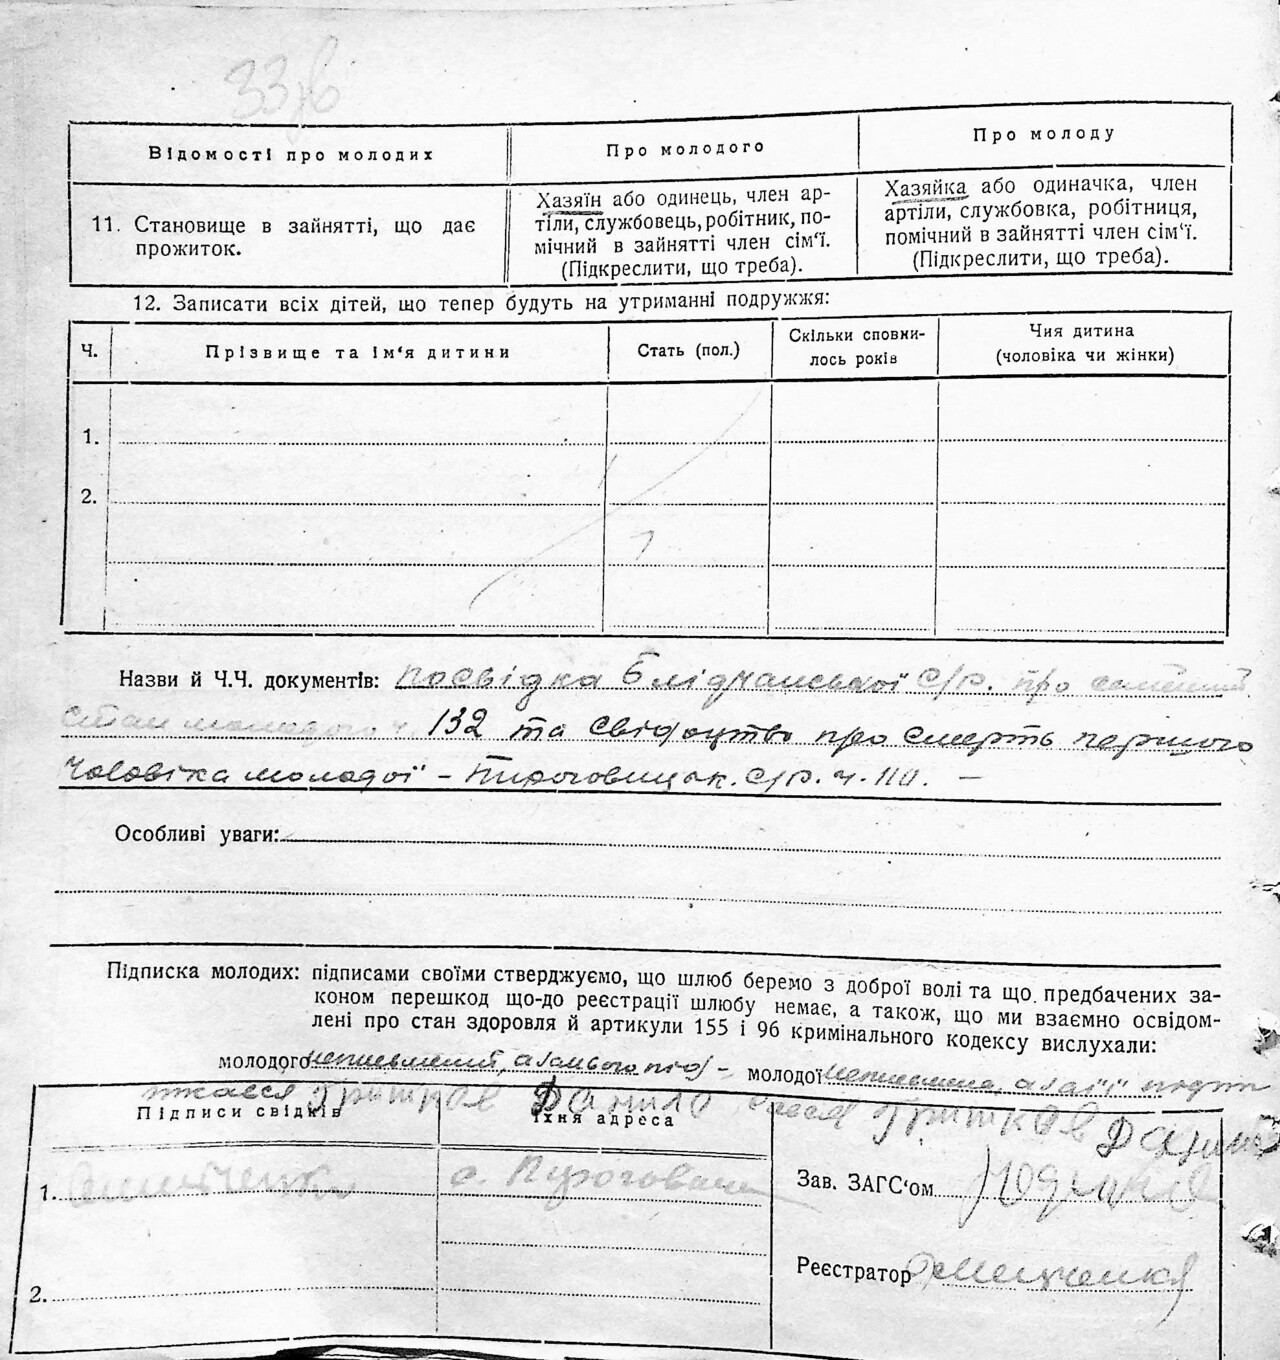 33зв
Відомості про молодих
Про молодого
Про молоду
11. Становище в зайнятті, що дає
прожиток.
Хазяїн або одинець, член ар-
тілі, службовець, робітник, по-
мічний в зайнятті член сім'ї.
(Підкреслити, що треба).
Хазяйка або одиначка, член
артілі, службовка, робітниця,
помічний в зайнятті член сім'ї.
(Підкреслити, що треба).
12. Записати всіх дітей, що тепер будуть на утриманні подружжя:
Ч.
Прізвище та ім'я дитини
Стать (пол.)
Скільки сповни-
лось років
Чия дитина
(чоловіка чи жінки)
1.
2.
Назви й Ч.Ч. документів: посвідка Блідчанської с/р. про сімейний
стан молодого ч. 132 та свідоцтво про смерть першого
чоловіка молодої – Пироговицьк. с/р. ч. 110. –
Особливі уваги:
Підписка молодих: підписами своїми стверджуємо, що шлюб беремо з доброї волі та що предбачених за-
коном перешкод що-до реєстрації шлюбу немає, а також, що ми взаємно освідом-
лені про стан здоровля й артикули 155 і 96 кримінального кодексу вислухали:
молодого неписьмений, а за нього під– молодої неписьмена, а за її підпи
Данило Данило
Підписи свідків
їхня адреса
1. с.
Зав. ЗАГС'ом
2.
Реєстратор